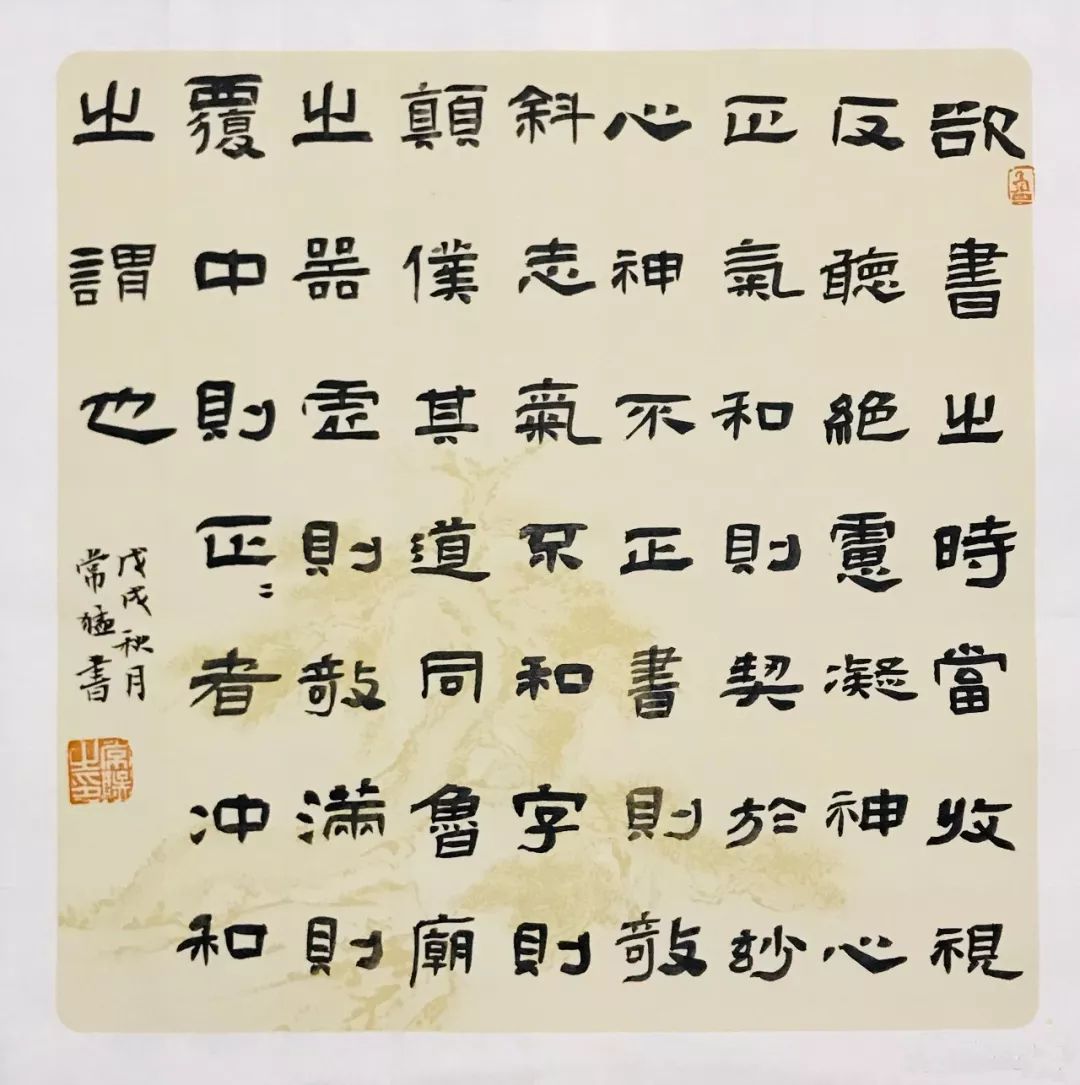 欲書之時當收視
反聽絕慮凝神心
正氣和則契於妙
心神不正書則敧
斜志氣不和字則
顛僕其道同魯廟
之器虛則敧滿則
覆中則正〻者冲和
之謂也
戊戌秋月
常猛書